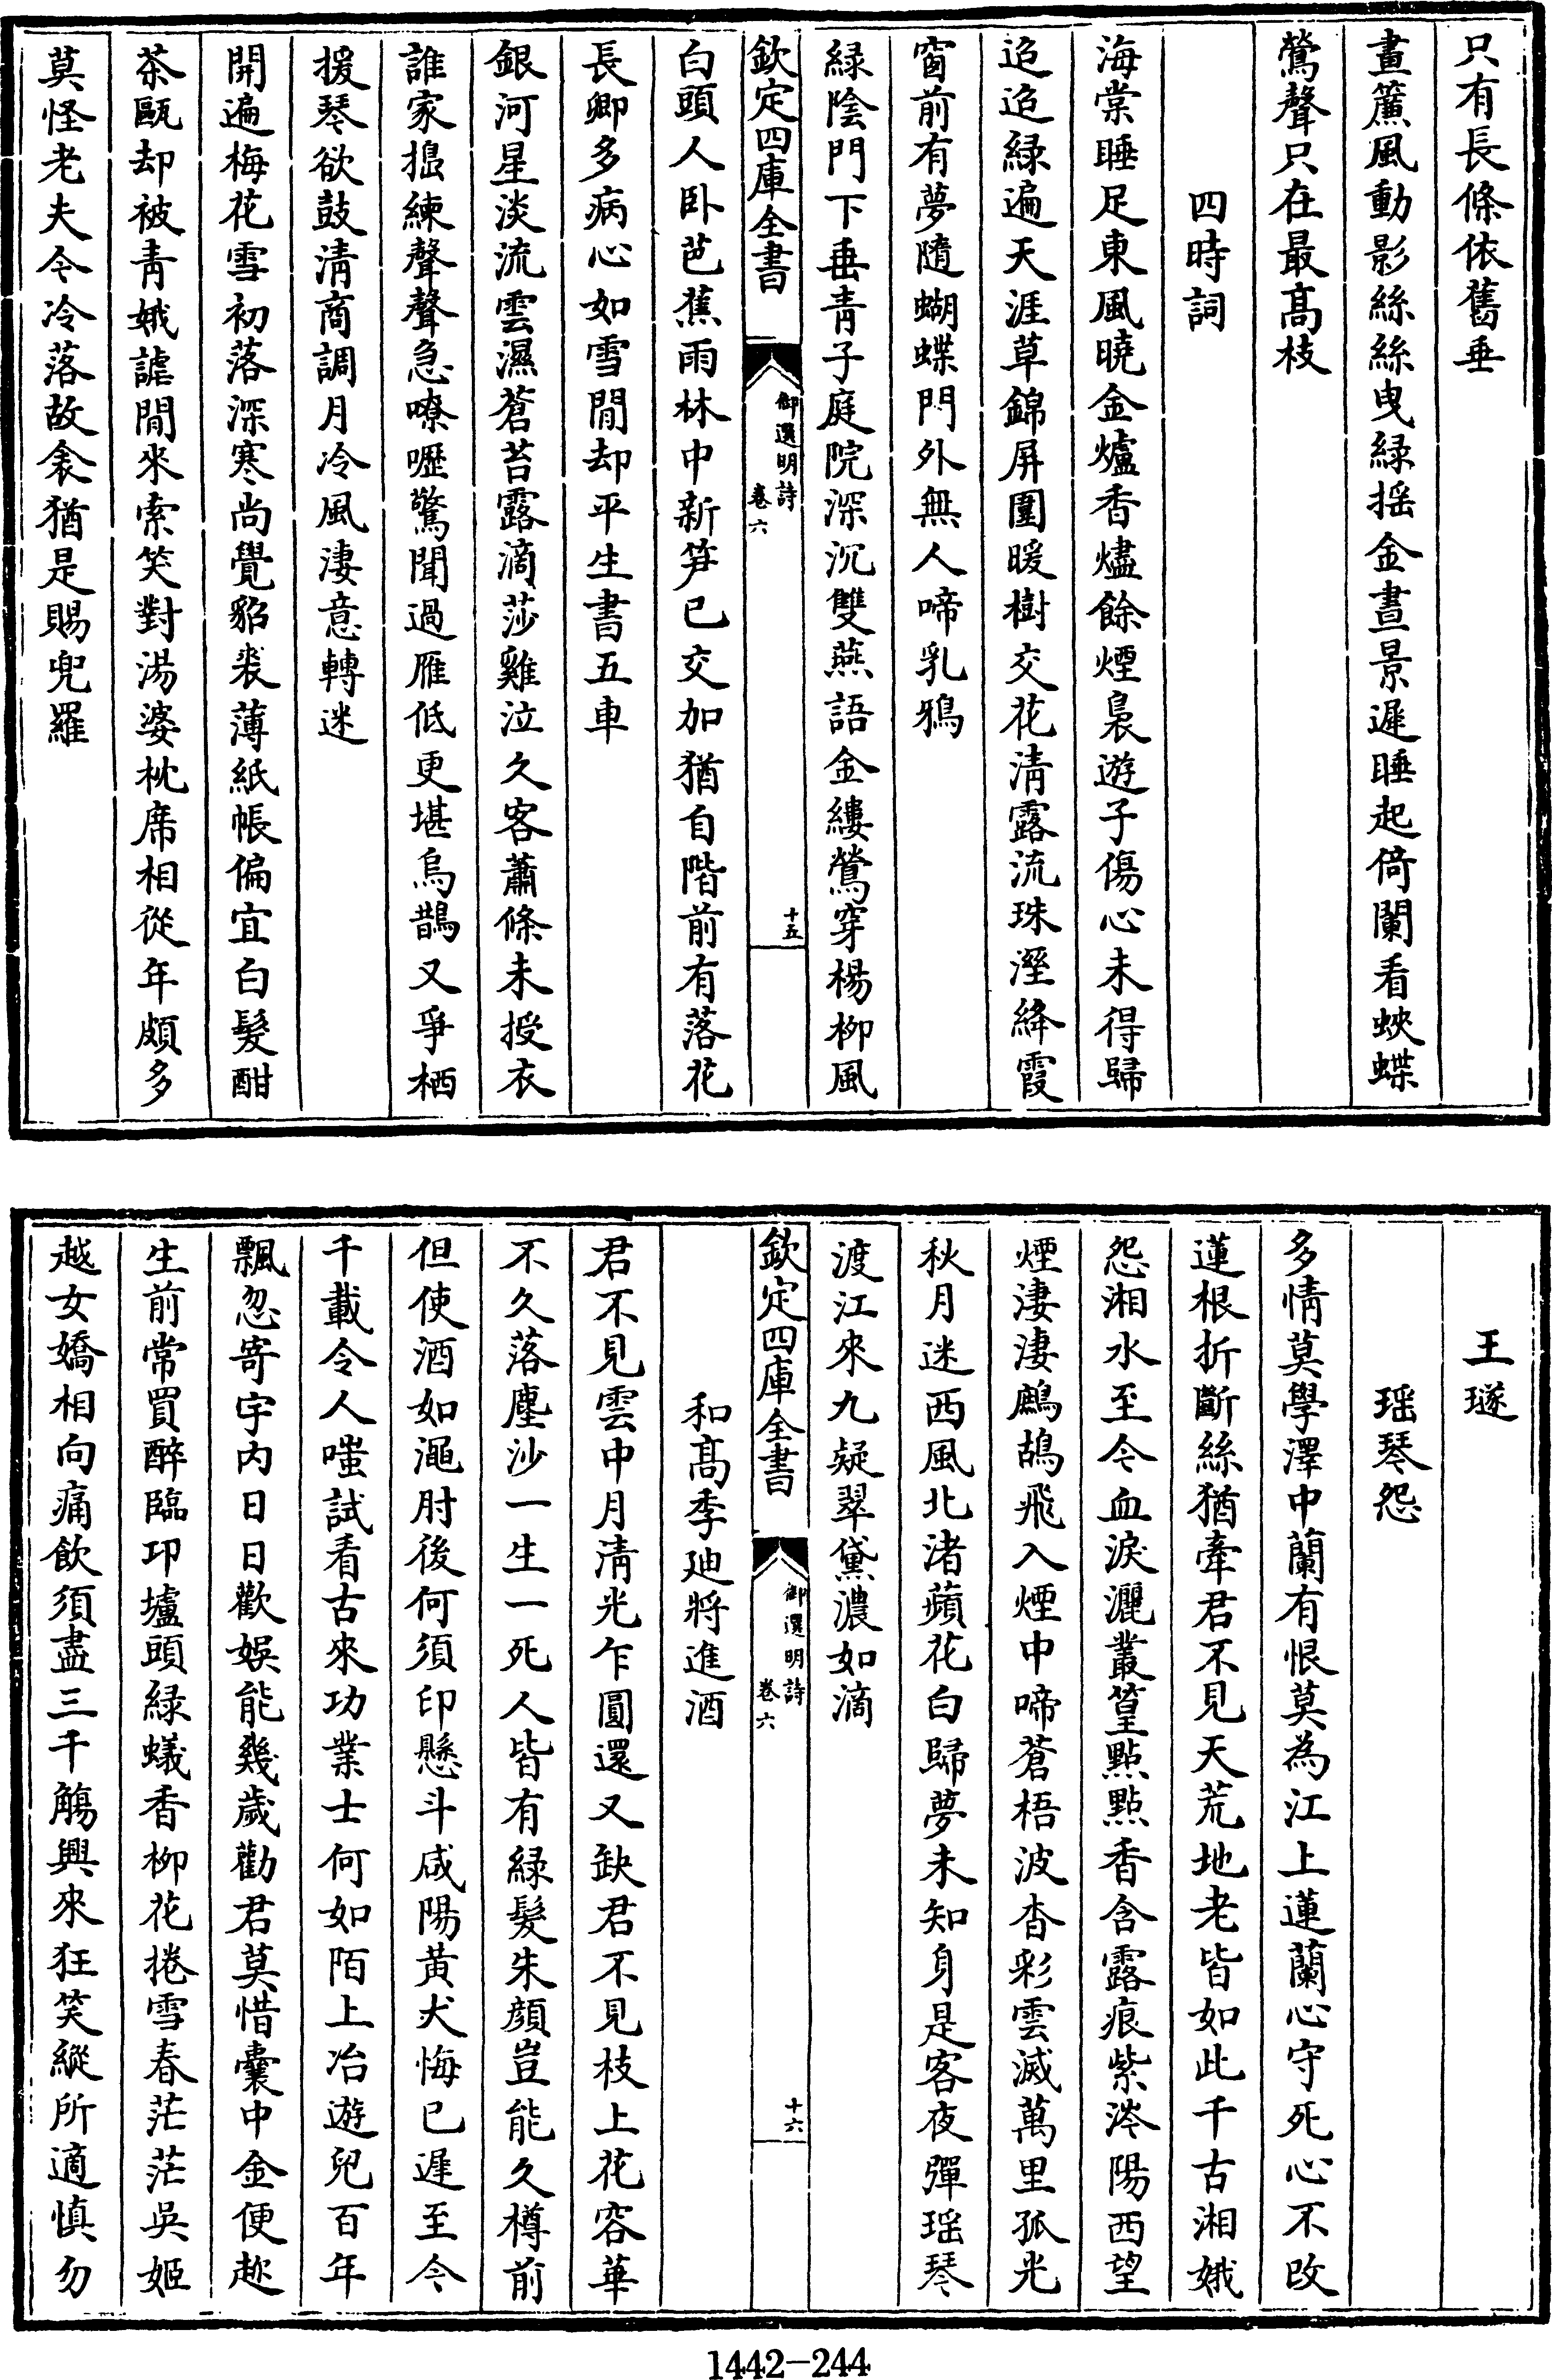 只有長條依舊垂
畫簾風動影絲絲曳緑揺金晝景遲睡起倚闌看蛺蝶
鶯聲只在最髙枝
四時詞
海棠睡足東風曉金爐香燼餘煙裊遊子傷心未得歸
迢迢緑遍天涯草錦屏圍暖樹交花清露流珠溼絳霞
窗前有夢隨蝴蝶門外無人啼乳鴉
緑陰門下垂青子庭院深沉雙燕語金縷鶯穿楊柳風
欽定四庫全書
御選明詩
卷六
十五
白頭人卧芭蕉雨林中新笋已交加猶自階前有落花
長卿多病心如雪閒却平生書五車
銀河星淡流雲濕蒼苔露滴莎雞泣久客蕭條未授衣
誰家搗練聲聲急嘹嚦驚聞過雁低更堪烏鵲又爭栖
援琴欲鼓清商調月冷風淒意轉迷
開遍梅花雪初落深寒尚覺貂裘薄紙帳偏宜白髮酣
茶甌却被青娥謔閒來索笑對湯婆枕席相從年頗多
莫怪老夫今冷落故衾猶是賜兜羅
王璲
瑶琴怨
多情莫學澤中蘭有恨莫為江上蓮蘭心守死心不改
蓮根折斷絲猶牽君不見天荒地老皆如此千古湘娥
怨湘水至今血淚灑叢篁點點香含露痕紫涔陽西望
煙淒淒鷓鴣飛入煙中啼蒼梧波杳彩雲滅萬里孤光
秋月迷西風北渚蘋花白歸夢未知身是客夜彈瑶琴
渡江來九疑翠黛濃如滴
欽定四庫全書
御選明詩
卷六
十六
和髙季迪將進酒
君不見雲中月清光乍圓還又缺君不見枝上花容華
不久落塵沙一生一死人皆有緑髮朱顔豈能久樽前
但使酒如澠肘後何須印懸斗咸陽黄犬悔已遲至今
千載令人嗤試看古來功業士何如陌上冶遊兒百年
飄忽寄宇内日日歡娛能幾歲勸君莫惜囊中金便趂
生前常買醉臨邛壚頭緑蟻香柳花捲雪春茫茫吳姬
越女嬌相向痛飲須盡三千觴興來狂笑縱所適慎勿
1442-244